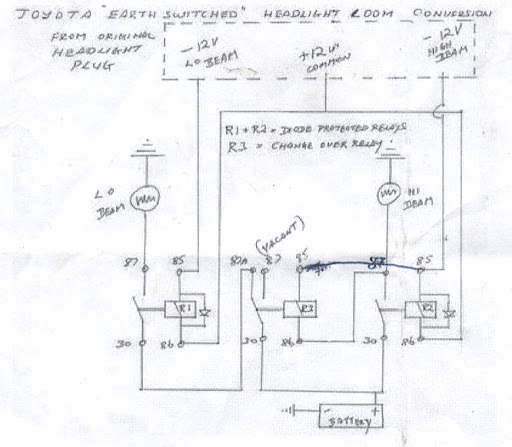 TOYOTA "EARTH SWITCHED" HEADLIGHT LOOM CONVERSION
FROM ORIGINAL
HEADLIGHT
PLUG
- 12V
LO BEAM
+12V
COMMON
- 12V
HIGH
BEAM
R1 + R2 = DIODE PROTECTED RELAYS
R3 = CHANGE OVER RELAY
LO
BEAM
HI
BEAM
(VACANT)
87
85
87A
87
85
87
85
R1
R3
R2
30
86
30
86
30
86
-
+
BATTERY